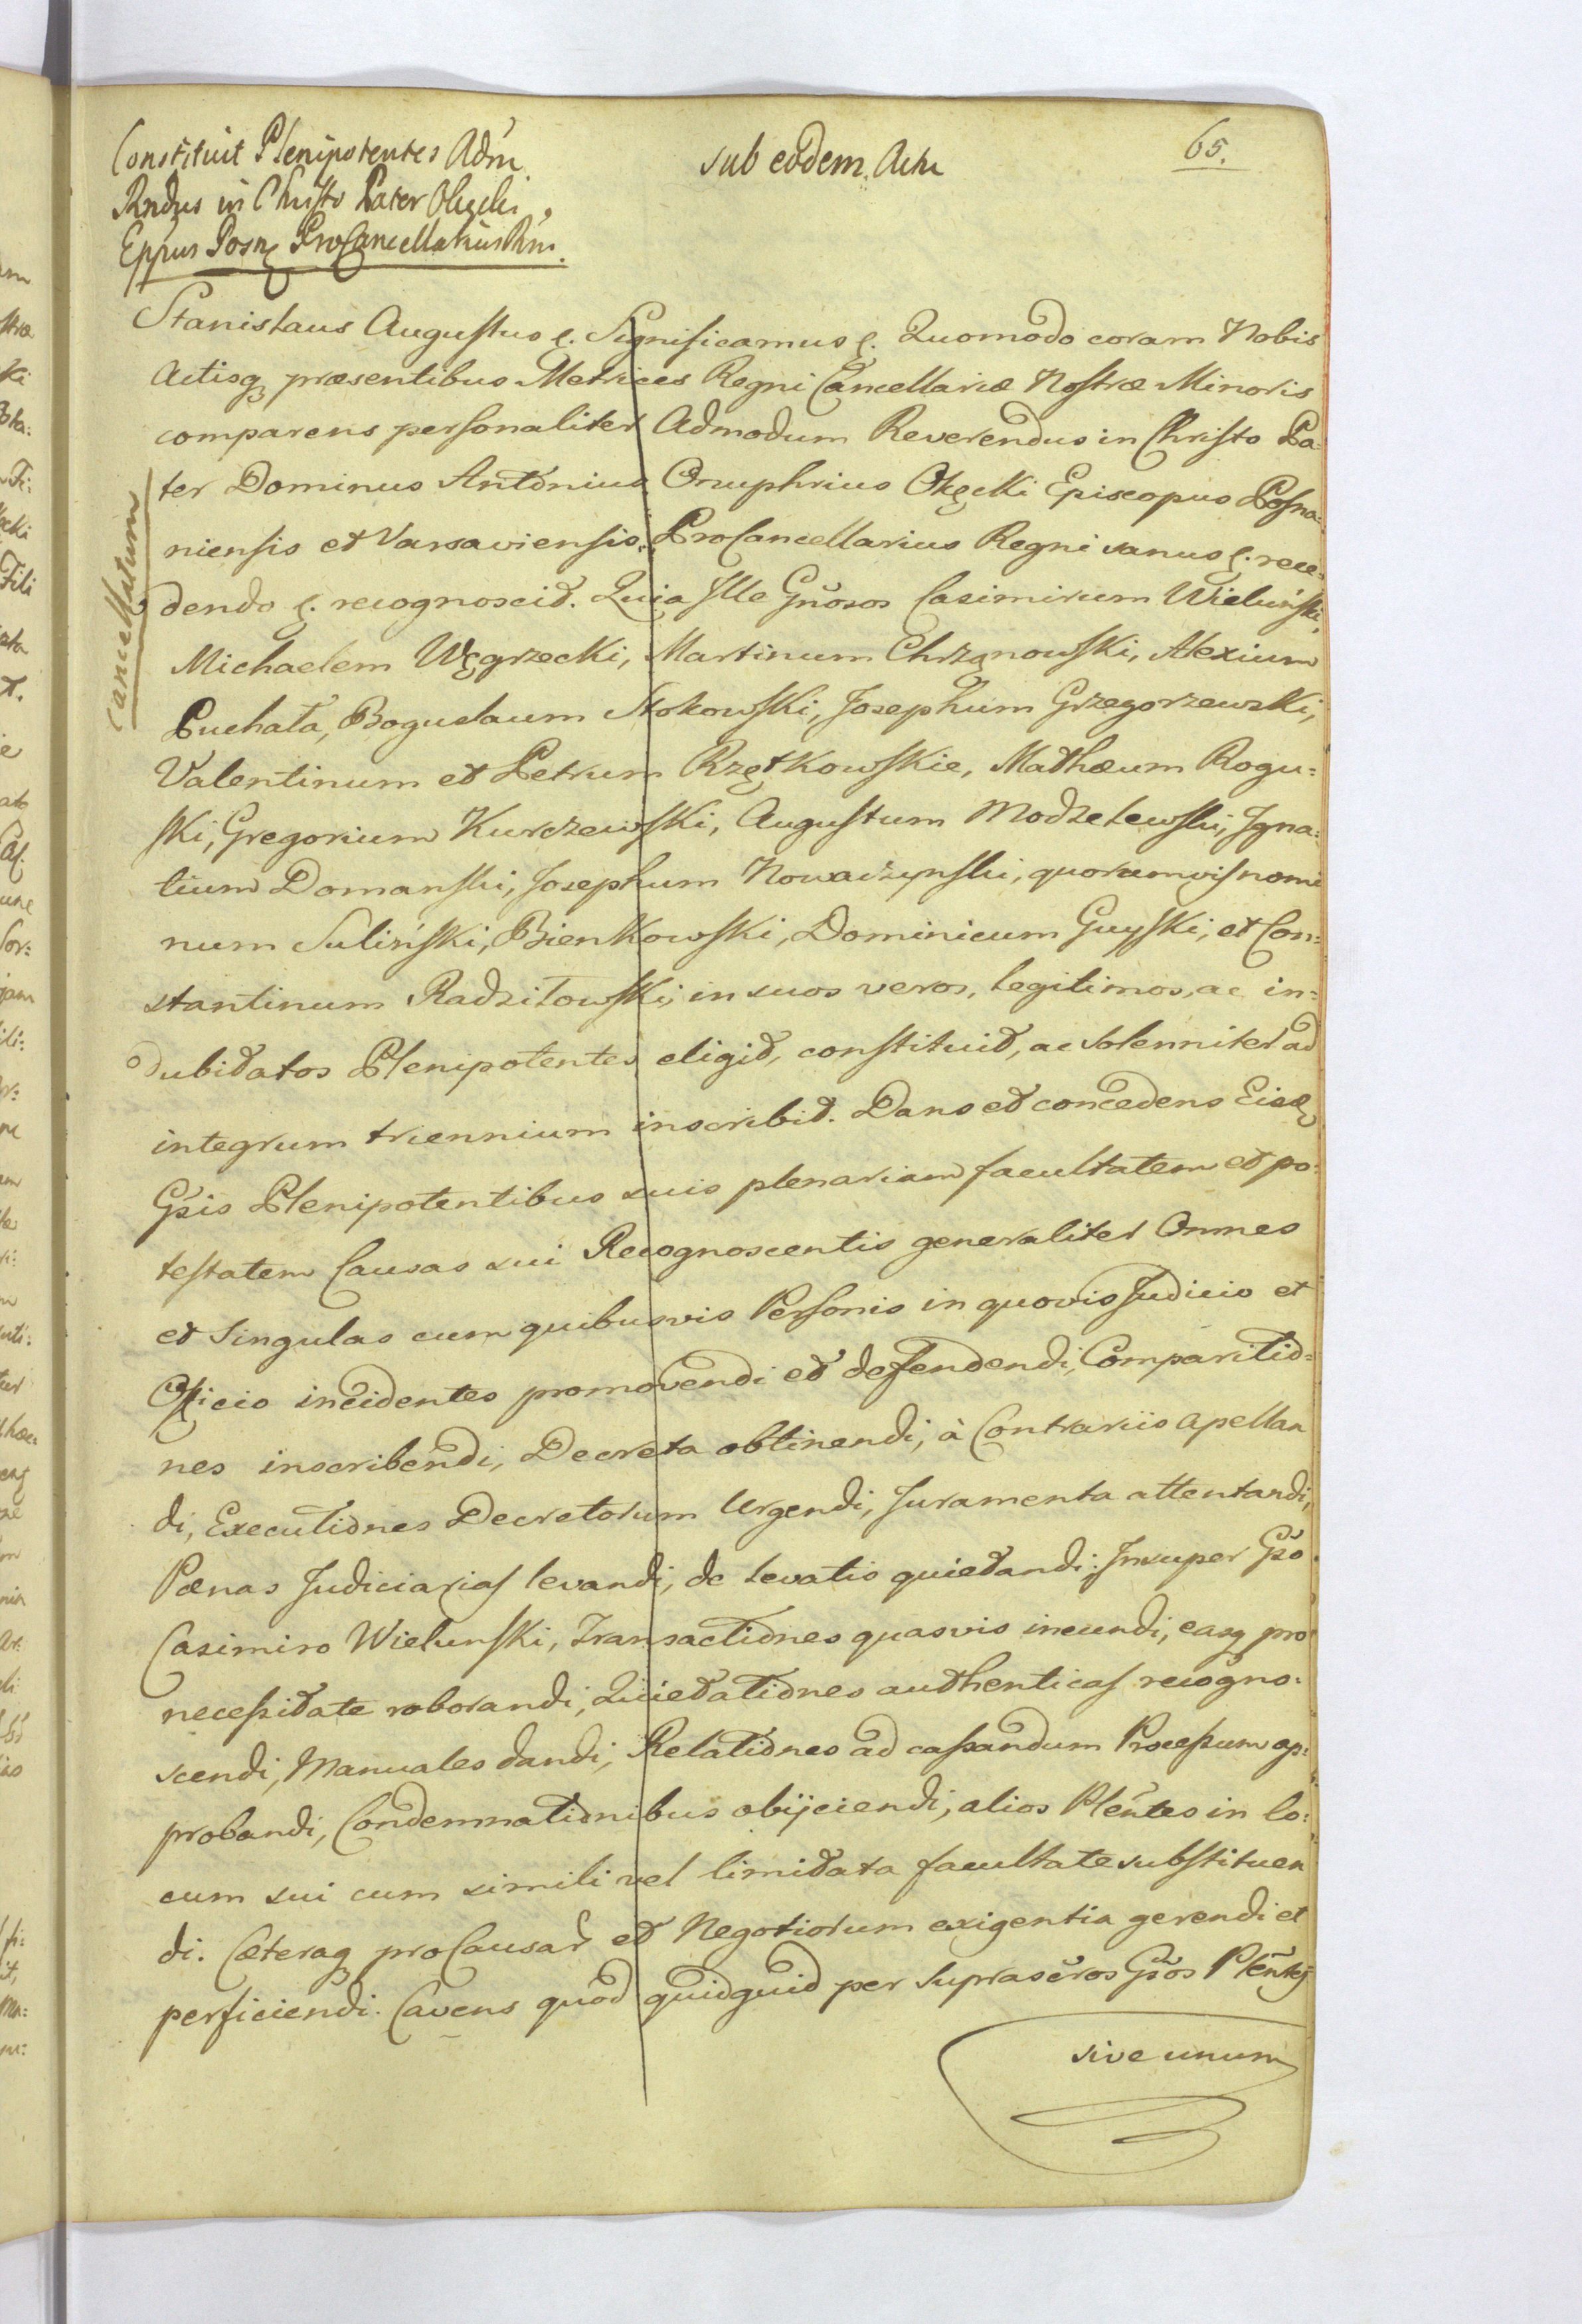 Constituit Plenipotentes Adm
Rndus in Christo Pater Okęcki,
Eppus Posn ProCancellarius Rni.
sub eodem Actu
65.
Stanislaus Augustus &. Significamus &. Quomodo coram Nobis
Actisq præsentibus Metrices Regni Cancellariæ Nostræ Minoris
comparens personaliter Admodum Reverendus in Christo Pa:
ter Dominus Antonius Onuphrius Okęcki Episcopus Posna:
niensis et Varsaviensis, ProCancellarius Regni sanus &. rece:
dendo &. recognoscit. Quia Ille Gñosos Casimirum Wieluński,
Michaelem Węgrzecki, Martinum Chrzanowski, Alexium
Puchała, Boguslaum Stokowski, Josephum Grzegorzewski,
Valentinum et Petrum Rzętkowskie, Mathæum Rogu:
ski, Gregorium Kurczewski, Augustum Modzelewski, Igna:
tium Domanski, Josephum Nowaczynski, quorumvis nomi
num Suliński, Bienkowski, Dominicum Guyski, et Con:
stantinum Radziłowski, in suos veros, legitimos, ac in:
dubitatos Plenipotentes eligit, constituit, ac solenniter ad
integrum triennium inscribit. Dans et concedens Eisdę
Gsis Plenipotentibus suis plenariam facultatem et po:
testatem Causas sui Recognoscentis generaliter Omnes
et Singulas cum quibusvis Personis in quovis Judicio et
Officio incidentes promovendi et defendendi, Comparitio:
nes inscribendi, Decreta obtinendi, à Contrariis apellan
di, Executiones Decretorum Urgendi, Juramenta attentandi,
Pœnas Judiciarias levandi, de levatis quietandi; Insuper Gso
Casimiro Wielunski, Transactiones quasvis ineundi, easq pro
necessitate roborandi, Quietationes authenticas recogno:
scendi, Manuales dandi, Relationes ad cassandum Processum ap:
probandi, Condemnationibus obijciendi, alios Pleñtes in lo:
cum sui cum simili vel limitata facultate substituen
di. Cæteraq pro Causar et Negotiorum exigentia gerendi et
perficiendi. Cavens quod quidquid per Suprascros Gsos Pleñtes
sive unum
cancellatum